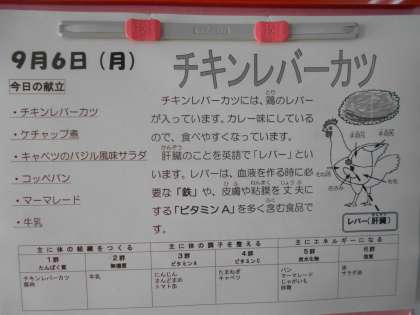 9月6日(月)
チキンレバーカツ
今日の献立
・チキンレバーカツ
・ケチャップ煮
・キャベツのバジル風味サラダ
・コッペパン
・マーマレード
・牛乳
チキンレバーカツには、鶏のレバー
が入っています。カレー味にしている
ので、食べやすくなっています。
肝臓のことを英語で「レバー」とい
います。レバーは、血液を作る時に必
要な「鉄」や、皮膚や粘膜を丈夫に
する「ビタミンA」を多く含む食品で
す。
レバー(肝臓)
主に体の組織をつくる
主に体の調子を整える
主にエネルギーになる
1群 たんぱく質
2群 無機質
3群 ビタミンA
4群 ビタミンC
5群 炭水化物
6群 脂質
チキンレバーカツ
牛乳
にんじん
さんどまめ
トマト缶
たまねぎ
キャベツ
パン
マーマレード
じゃがいも
砂糖
油
サラダ油